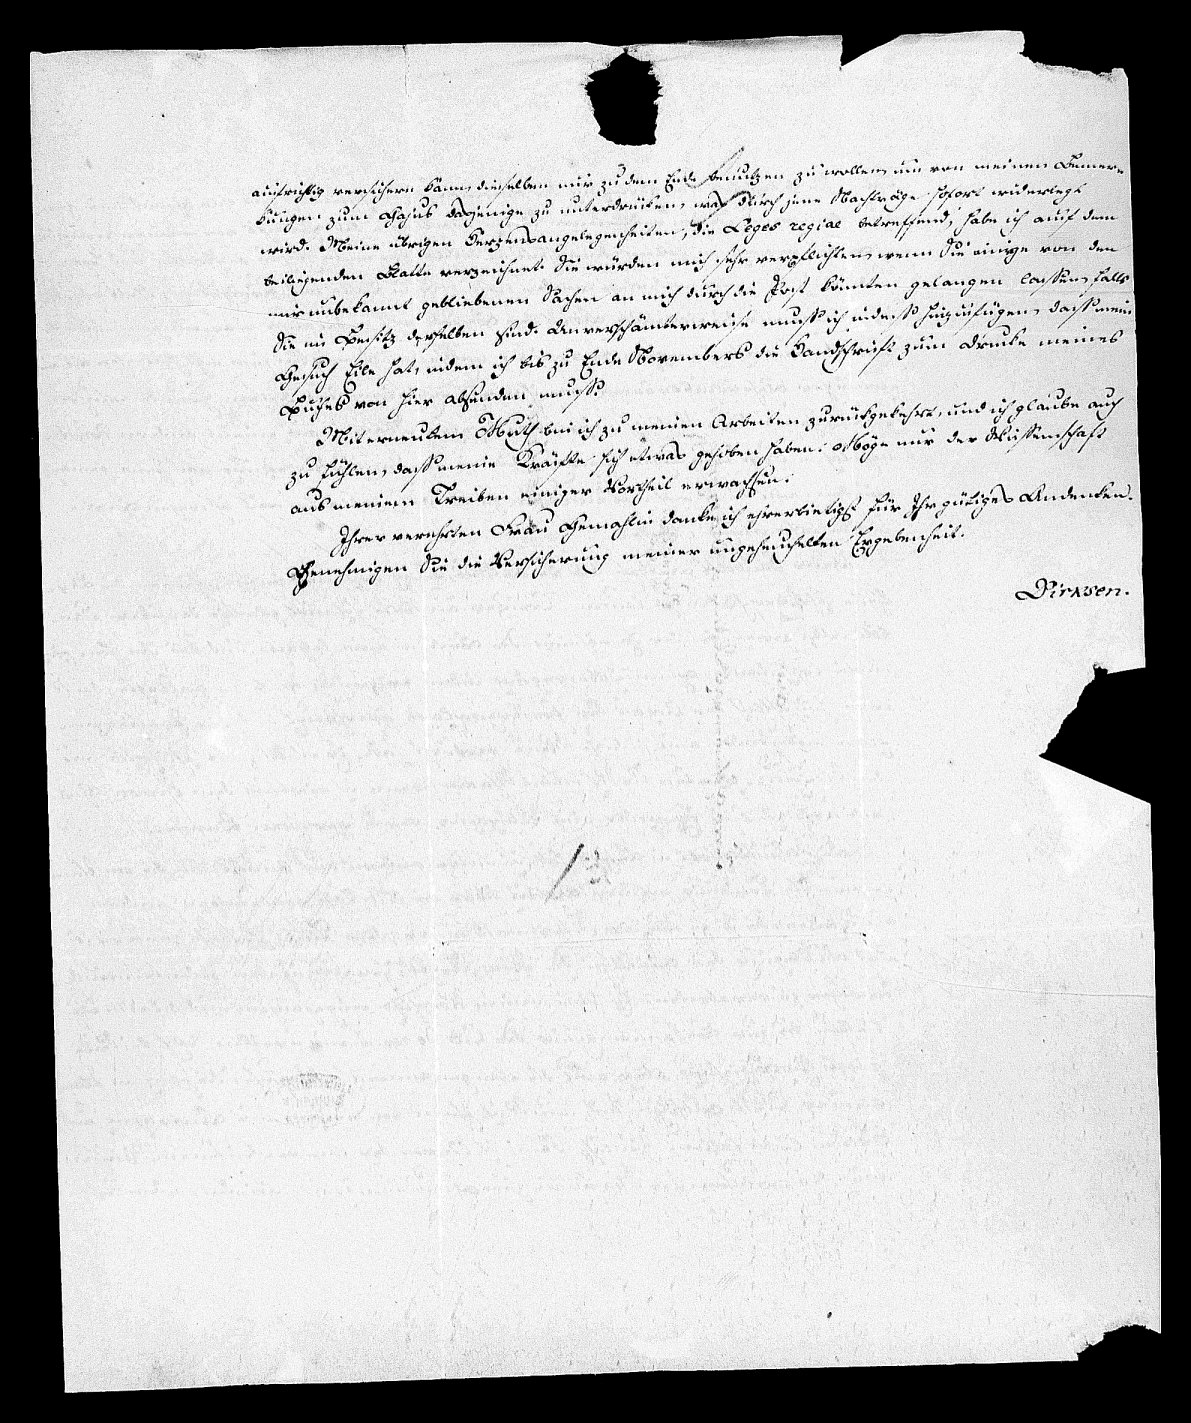 aufrichtig versichern kann, dieselben nur zu dem Ende benutzen zu wollen, um von meinen Bemer-
kungen zum Gajus dasjenige zu unterdrücken, was durch jene Nachträge sofort widerlegt
wird. Meine übrigen Herzensangelegenheiten, die Leges regiae betreffend, habe ich auf dem
beiliegenden Blatte verzeichnet. Sie würden mich sehr verpflichten, wenn Sie einige von den
mir unbekannt gebliebenen Sachen an mich durch die Post könnten gelangen lassen, falls
Sie im Besitz derselben sind. Unverschämterweise muss ich indess hinzufügen, dass mein
Gesuch Eile hat, indem ich bis zu Ende Novembers die Handschrift zum Drucke meines
Buches von hier absenden muss.
Mit erneutem Muth bin ich zu meinen Arbeiten zurückgekehrt, und ich glaube auch
zu fühlen, dass meine Kräfte sich etwas gehoben haben. Möge nur der Wissenschaft
aus meinem Treiben einiger Vortheil erwachsen.
Ihrer verehrten Frau Gemahlin danke ich ehrerbietigst für Ihr gütiges Andenken.
Genehmigen Sie die Versicherung meiner ungeheuchelten Ergebenheit.
Dirksen.